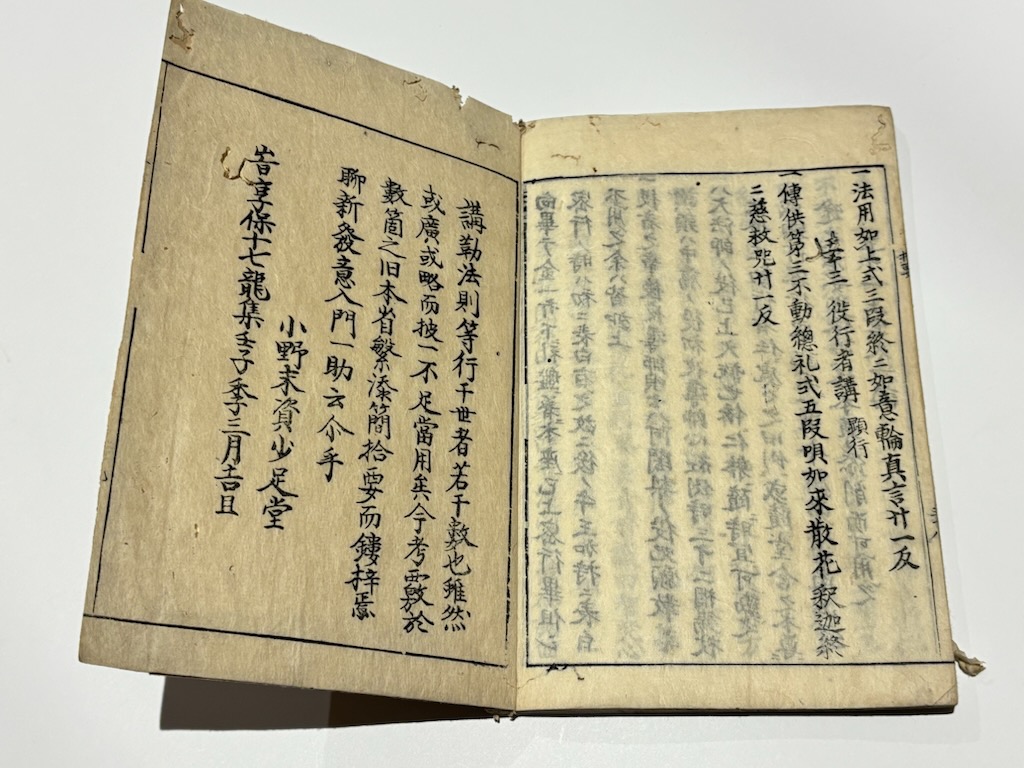 一法用如上式三段終ニ如意輪真言廿一反
第三 役行者講 顕行
一傳供第三不動總礼式五段唄如來散花釈迦終
ニ慈救咒廿一反
講勤法則等行于世者若干數也雖然
或廣或略而披一不足當用矣今考覈於
數箇之旧本省繁添簡拾要而鏤梓焉
聊新發意入門一助云尒乎
小野末資少足堂
旹享保十七龍集壬子季三月吉旦